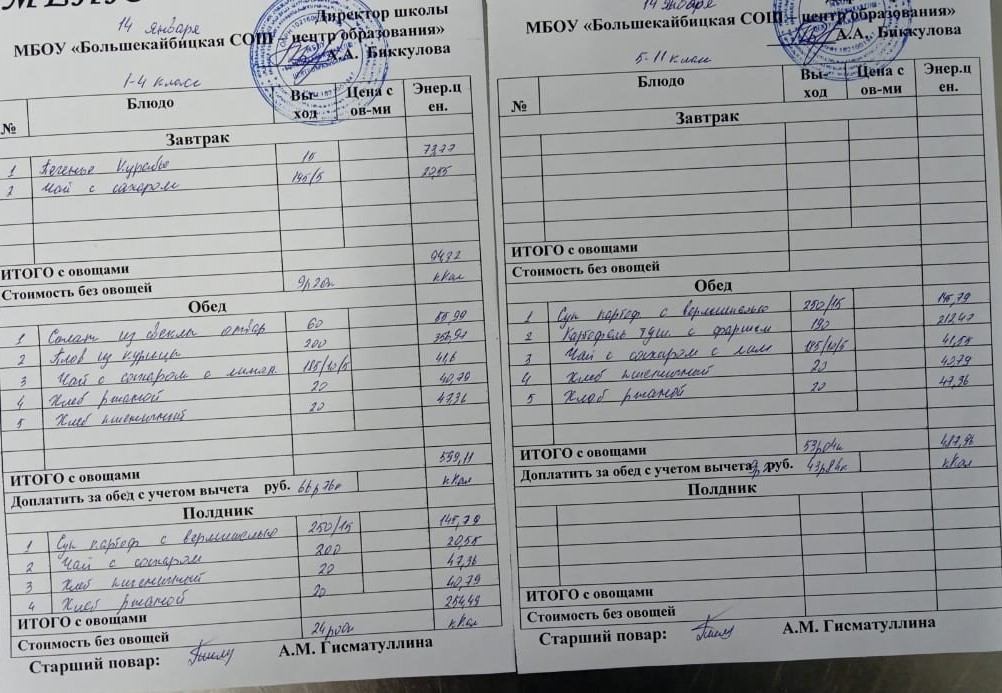 МЕНЮ
Директор школы
14 января
МБОУ «Большекайбицкая СОШ – центр образования»
А.А. Биккулова
1-4 класс
№ Блюдо Вы-ход Цена с ов-ми Энер.цен.
Завтрак
1 Печенье Курабье 15
2 Чай с сахаром 195/5
ИТОГО с овощами 94,32
Стоимость без овощей 9р20к ккал
Обед
1 Салат из свеклы отвар 60
2 Плов из курицы 200
3 Чай с сахаром с лимон 185/10/5 41,6
4 Хлеб ржаной 20 40,79
5 Хлеб пшеничный 20 47,36
ИТОГО с овощами 539,11
Доплатить за обед с учетом вычета руб. 66р76к ккал
Полдник
1 Суп картоф с вермишелью 250/15 145,79
2 Чай с сахаром 200 20,55
3 Хлеб пшеничный 20 47,36
4 Хлеб ржаной 20 40,79
ИТОГО с овощами 254,49
Стоимость без овощей ккал
Старший повар: А.М. Гисматуллина
14 января
МБОУ «Большекайбицкая СОШ – центр образования»
А.А. Биккулова
5-11 класс
№ Блюдо Вы-ход Цена с ов-ми Энер.цен.
Завтрак
ИТОГО с овощами
Стоимость без овощей
Обед
1 Суп картоф с вермишелью 250/15 145,79
2 Картофель туш. с фаршем 190 212,47
3 Чай с сахаром с лим 185/10/5 41,55
4 Хлеб пшеничный 20 40,79
5 Хлеб ржаной 20 47,36
ИТОГО с овощами 53р04к 487,96
Доплатить за обед с учетом вычета руб. 43р84к ккал
Полдник
ИТОГО с овощами
Стоимость без овощей
Старший повар: А.М. Гисматуллина